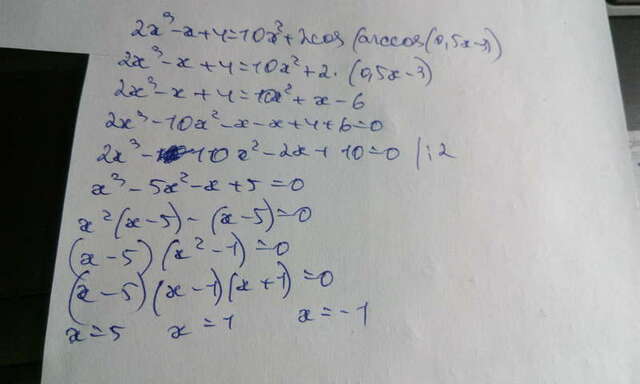 2x³-x+4=10x²+2cos(arccos(0,5x-3))
2x³-x+4=10x²+2·(0,5x-3)
2x³-x+4=10x²+x-6
2x³-10x²-x-x+4+6=0
2x³-10x²-2x+10=0 |:2
x³-5x²-x+5=0
x²(x-5)-(x-5)=0
(x-5)(x²-1)=0
(x-5)(x-1)(x+1)=0
x=5 x=1 x=-1